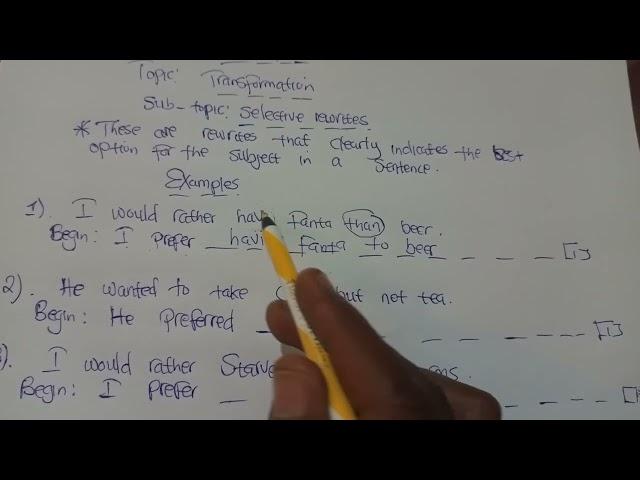 Topic: Transformation
Sub-topic: Selective rewrites
* These are rewrites that clearly indicates the best
option for the subject in a sentence.
Examples
1). I would rather have fanta than beer.
Begin: I prefer having fanta to beer [1]
2). He wanted to take but not tea.
Begin: He preferred [1]
I would rather Starve
Begin: I prefer